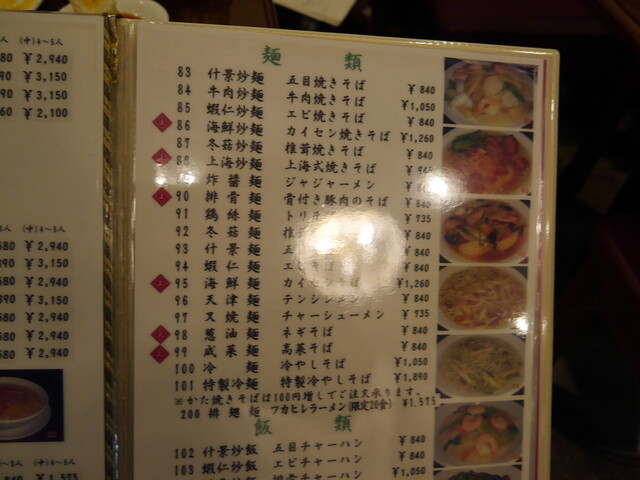 (中) 4～5人
¥2,940
¥3,150
¥3,150
¥2,100
(中) 4～5人
680 ¥2,940
890 ¥3,150
890 ¥3,150
680 ¥2,940
680 ¥2,940
680 ¥2,940
(中) 4～5人
¥1,575
麺 類
83 什景炒麺 五目焼きそば ¥840
84 牛肉炒麺 牛肉焼きそば ¥1,050
85 蝦仁炒麺 エビ焼きそば ¥840
86 海鮮炒麺 カイセン焼きそば ¥1,260
87 冬菇炒麺 椎茸焼きそば ¥840
88 上海炒麺 上海式焼きそば
炸醤麺 ジャジャーメン
90 排骨麺 骨付き豚肉のそば
91 鶏絲麺 ¥735
92 冬菇麺 ¥840
93 什景麺 ¥840
94 蝦仁麺 ¥840
95 海鮮麺 ¥1,260
96 天津麺 テンシンメン ¥840
97 叉焼麺 チャーシューメン ¥735
98 葱油麺 ネギそば ¥840
99 咸菜麺 高菜そば ¥840
100 冷麺 冷やしそば ¥1,050
101 特製冷麺 特製冷やしそば ¥1,890
※かた焼きそばは100円増しでご注文承ります。
200 排翅麺 フカヒレラーメン(限定20食) ¥1,575
飯 類
102 什景炒飯 五目チャーハン ¥840
103 蝦仁炒飯 エビチャーハン ¥1,050